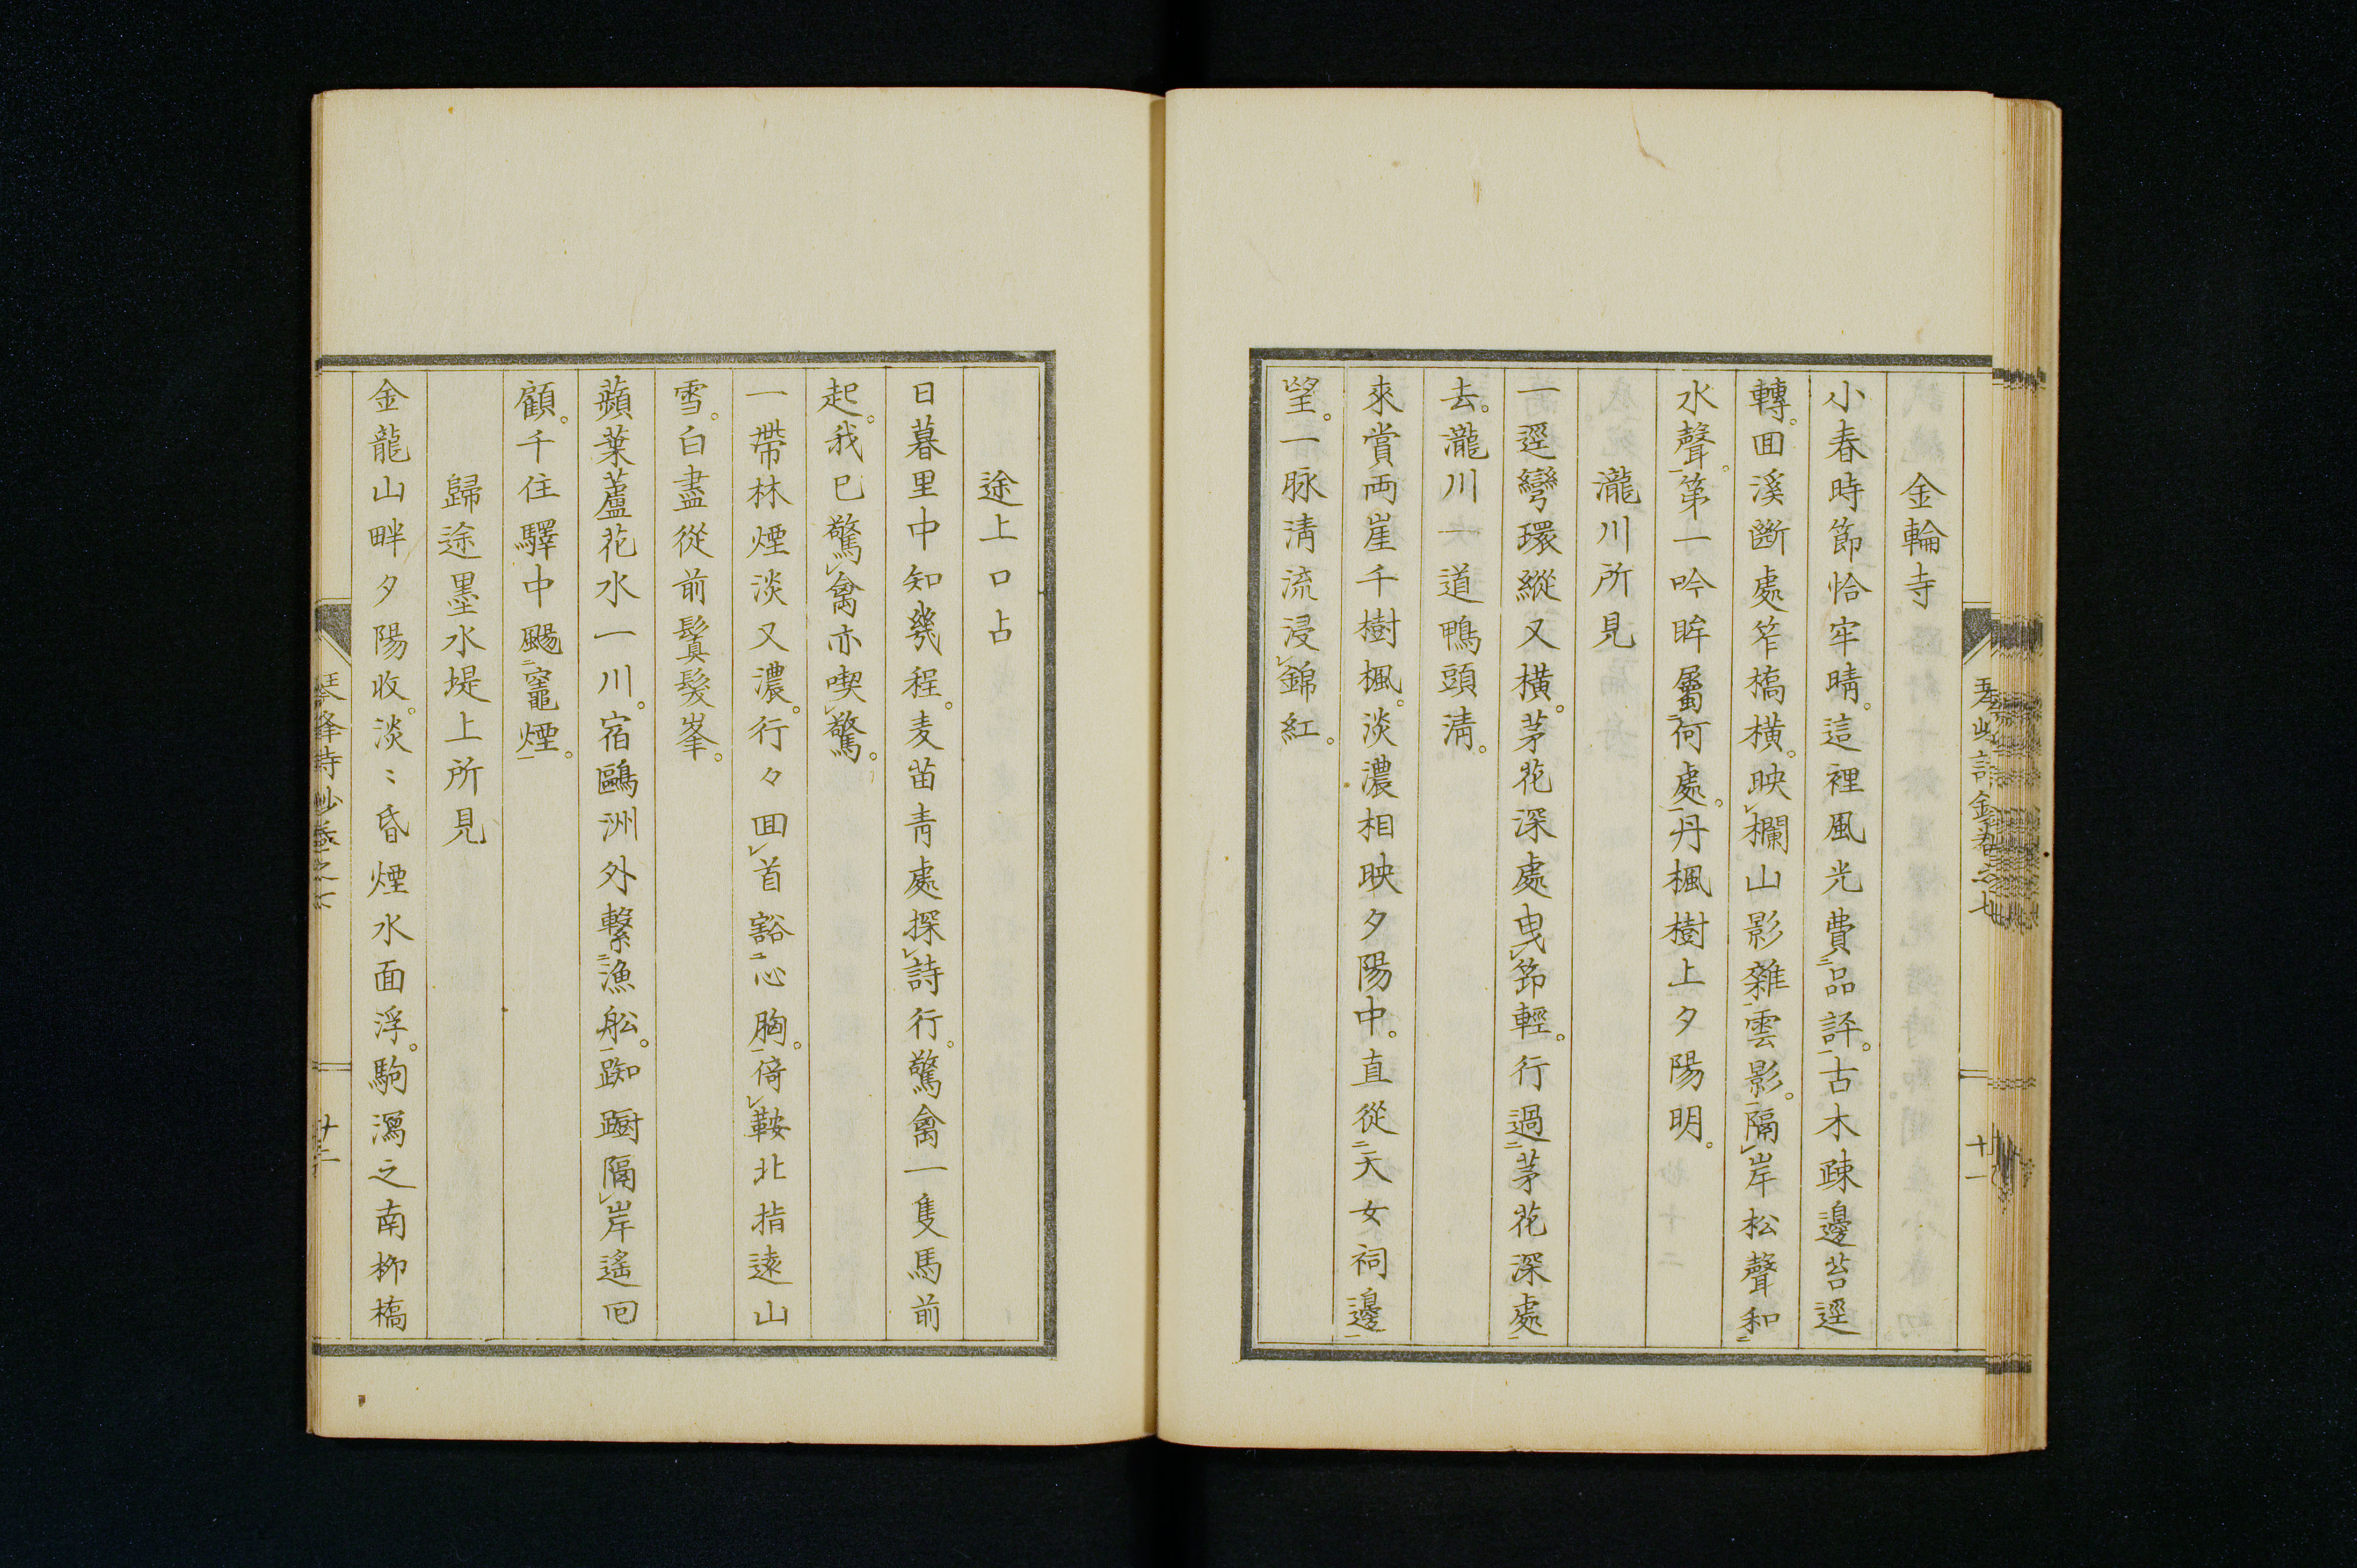 金輪寺
小春時節恰牢晴。這裡風光費㆓品評㆒。古木疎邊苔逕
轉。囬溪斷處笮橋橫。映㆑欄山影雜㆓雲影㆒。隔㆑岸松聲和㆓
水聲㆒。第一吟眸屬㆓何處㆒。丹楓樹上夕陽明。
瀧川所見
一逕彎環縱又橫。茅花深處曳㆑筇輕。行過㆓茅花深處㆒
去。瀧川一道鴨頭淸。
來賞両崖千樹楓。淡濃相映夕陽中。直從㆓天女祠邊㆒
望。一脉淸流浸㆑錦紅。
十一
途上口占
日暮里中知幾程。麦苗靑處探㆑詩行。驚禽一隻馬前
起。我已驚㆑禽亦喫㆑驚。
一帶林煙淡又濃。行々囬㆑首豁㆓心胸㆒。倚㆑鞍北指遠山
雪。白盡從前鬒髮峯。
蘋葉蘆花水一川。宿鷗洲外繋㆓漁舩㆒。踟躕隔㆑岸遙囘
顧。千住驛中颺㆓竈煙㆒。
歸途墨水堤上所見
金龍山畔夕陽收。淡〻昏煙水面浮。駒瀉之南柳橋
十二